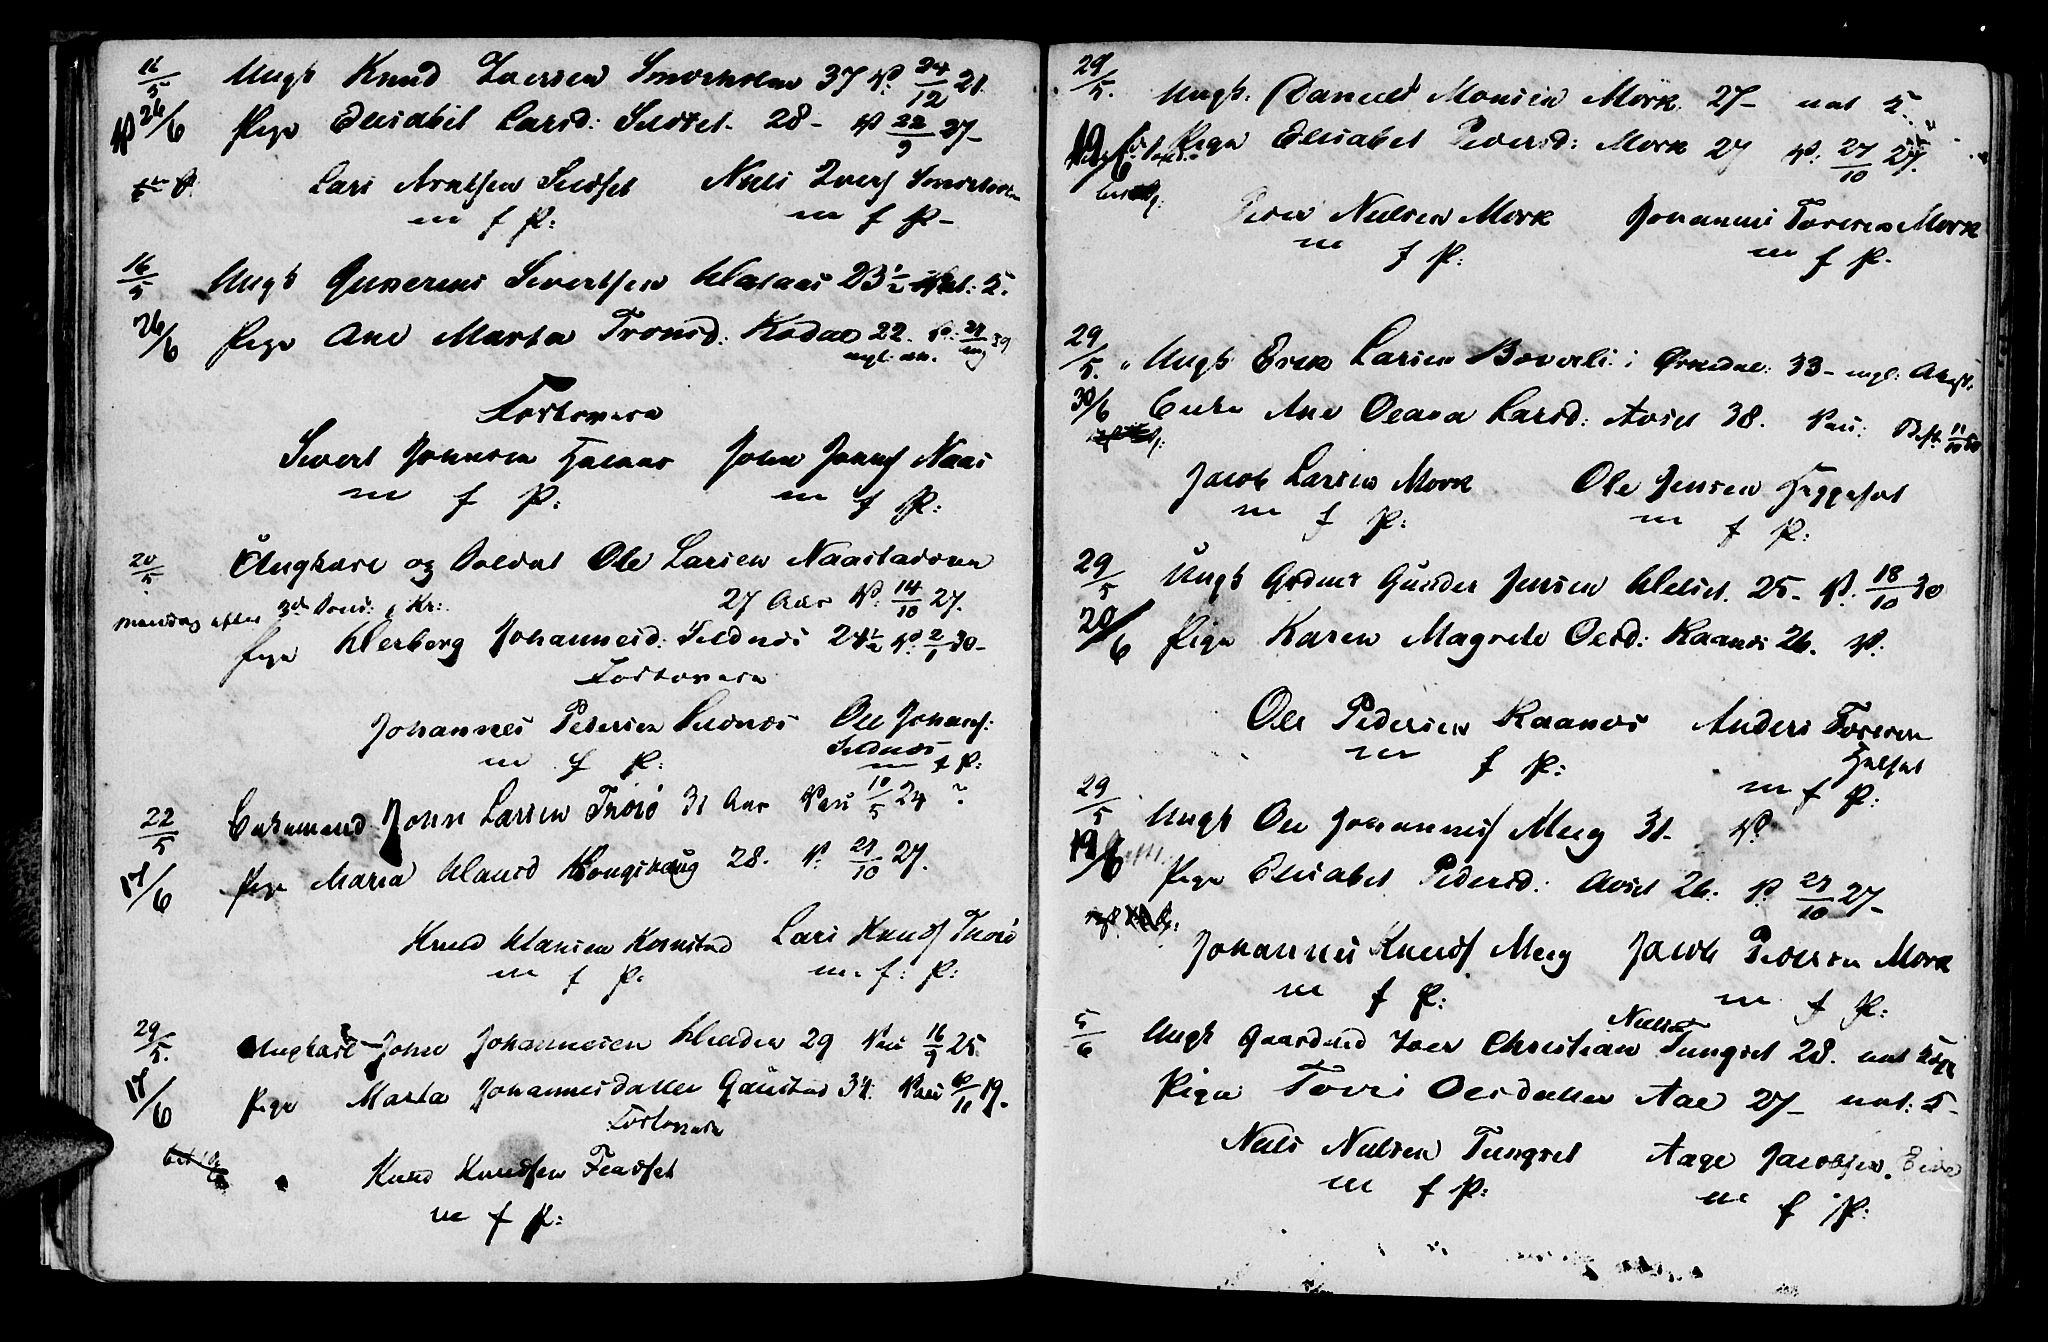 16/5 Ungk Knud Iversen Smorholm 37 V. 24/12 21.
26/6 Pige Elisabet Larsd: Seldset 28 - V 22/9 27-
Lars Arntsen Seldset Niels Ivers Smorholm
m f P: m f P-
16/5 Ungk Gunerius Sivertsen Halaas 23½ nat: 5.
26/6 Pige Ane Marta Tronsd: Kodal 22.
Forlovere
Sivert Johnsen Halaas John Jonas Naas
m f P: m f P:
20/5 Ungkarl og Soldat Ole Larsen Naastadoren
27 Aar V: 14/10 27.
mandag efter 3de Sønd:
Pige Herborg Johannesd: Seldnes 24½ V. 2/1 30-
Forlovere
Johannes Pedersen Seldnes Ole Johans:
Seldnes
m f P: m f P:
22/5 Enkemand John Larsen Thorö 31 Aar Vac 10/5 24 ?
17/6 Pige Maria Hansd Kongshaug 28. V. 27/10 27.
Knud Hansen Kornstad Lars Knuds Thorö
m f P. m. f: P:
29/5. Ungkarl John Johannesen Henden 29 Vac 16/9 25.
17/6 Pige Marta Johannesdatter Gaustad 34. Vac 10/11 19.
Forlovere
Knud Knudsen Farset
m f P:
29/5. Ungk. Daniel Monsen Mork 27- nat 5.
19/6 Pige Elisabet Pedersd: Mork 27 V. 27/10 27.
Peder Nielsen Mork Johannes Toresen Mork
m f P: m f P.
29/5. Ungk Erik Larsen Boverli i Ørkedal: 33-
30/6 Enke Ane Oleana Larsd: Avset 38. Vac:
Jacob Larsen Mork Ole Jensen Heggeset
m f P: m f P:
29/5 Ungk Gdmd Gunder Jensen Helset 25- V. 18/10 30
20/6 Pige Karen Magrete Olesd: Kaanes 26. V.
Ole Pedersen Kaanes Anders Toresen
Halset
m f P: m f P:
29/5 Ungk Ole Johannes Meeg 31- V
19/6 Pige Elisabet Pedersd: Avset 26. V 27/10 27-
Johannes Knuds Meeg Jacob Pedersen Mork
m f P: m f P:
Nielsen
5/6 Ungk Gaardmd Iver Christian Tungset 28. nat
Pige Torri Olesdatter Aae 27- nat: 5-
Niels Nielsen Tungset Aage Jacobsen. Eide
m f P: m f P: